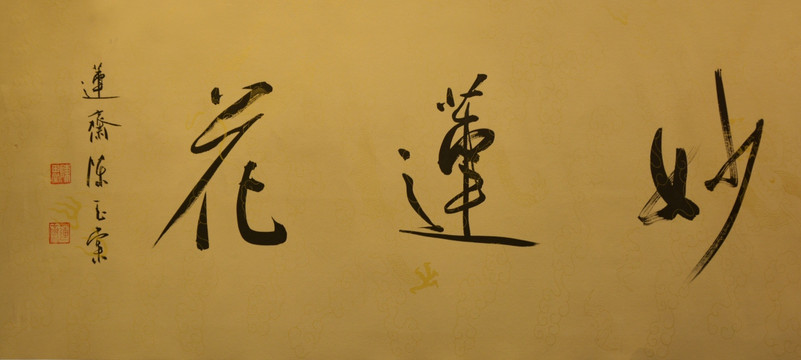 妙蓮花
蓮齋陳玉崇